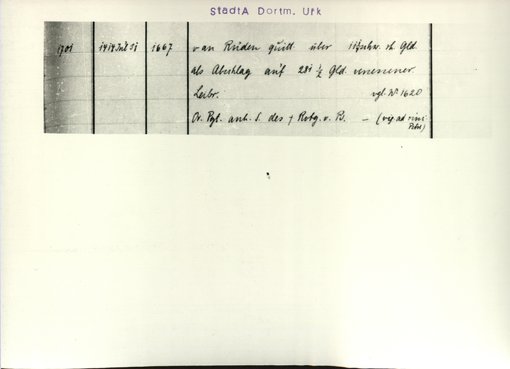 StadtA Dortm. Urk
1701 1414 Juli 31 1667 van Rüden quitt über schw. rh. Gld.
als Abschlag auf 281 1/2 Gld.
Leibr. vgl. Nº 1620
Or. Pgt. anh. S. des † Robg. v. B. – (vig ad vinc
Petri)